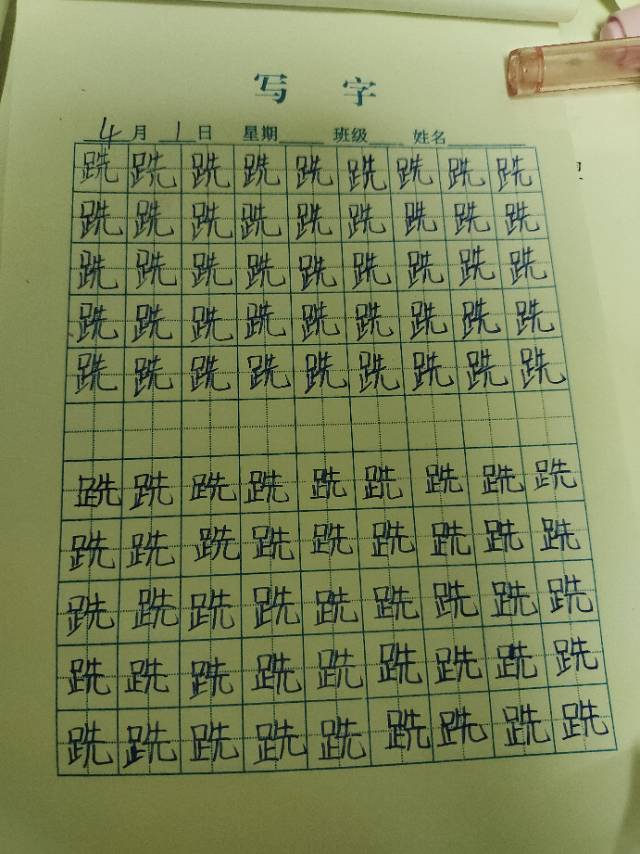 写 字
4月 1日 星期 班级 姓名
跣跣跣跣跣跣跣跣跣
跣跣跣跣跣跣跣跣跣
跣跣跣跣跣跣跣跣跣
跣跣跣跣跣跣跣跣跣
跣跣跣跣跣跣跣跣跣
跣跣跣跣跣跣跣跣跣
跣跣跣跣跣跣跣跣跣
跣跣跣跣跣跣跣跣跣
跣跣跣跣跣跣跣跣跣
跣跣跣跣跣跣跣跣跣